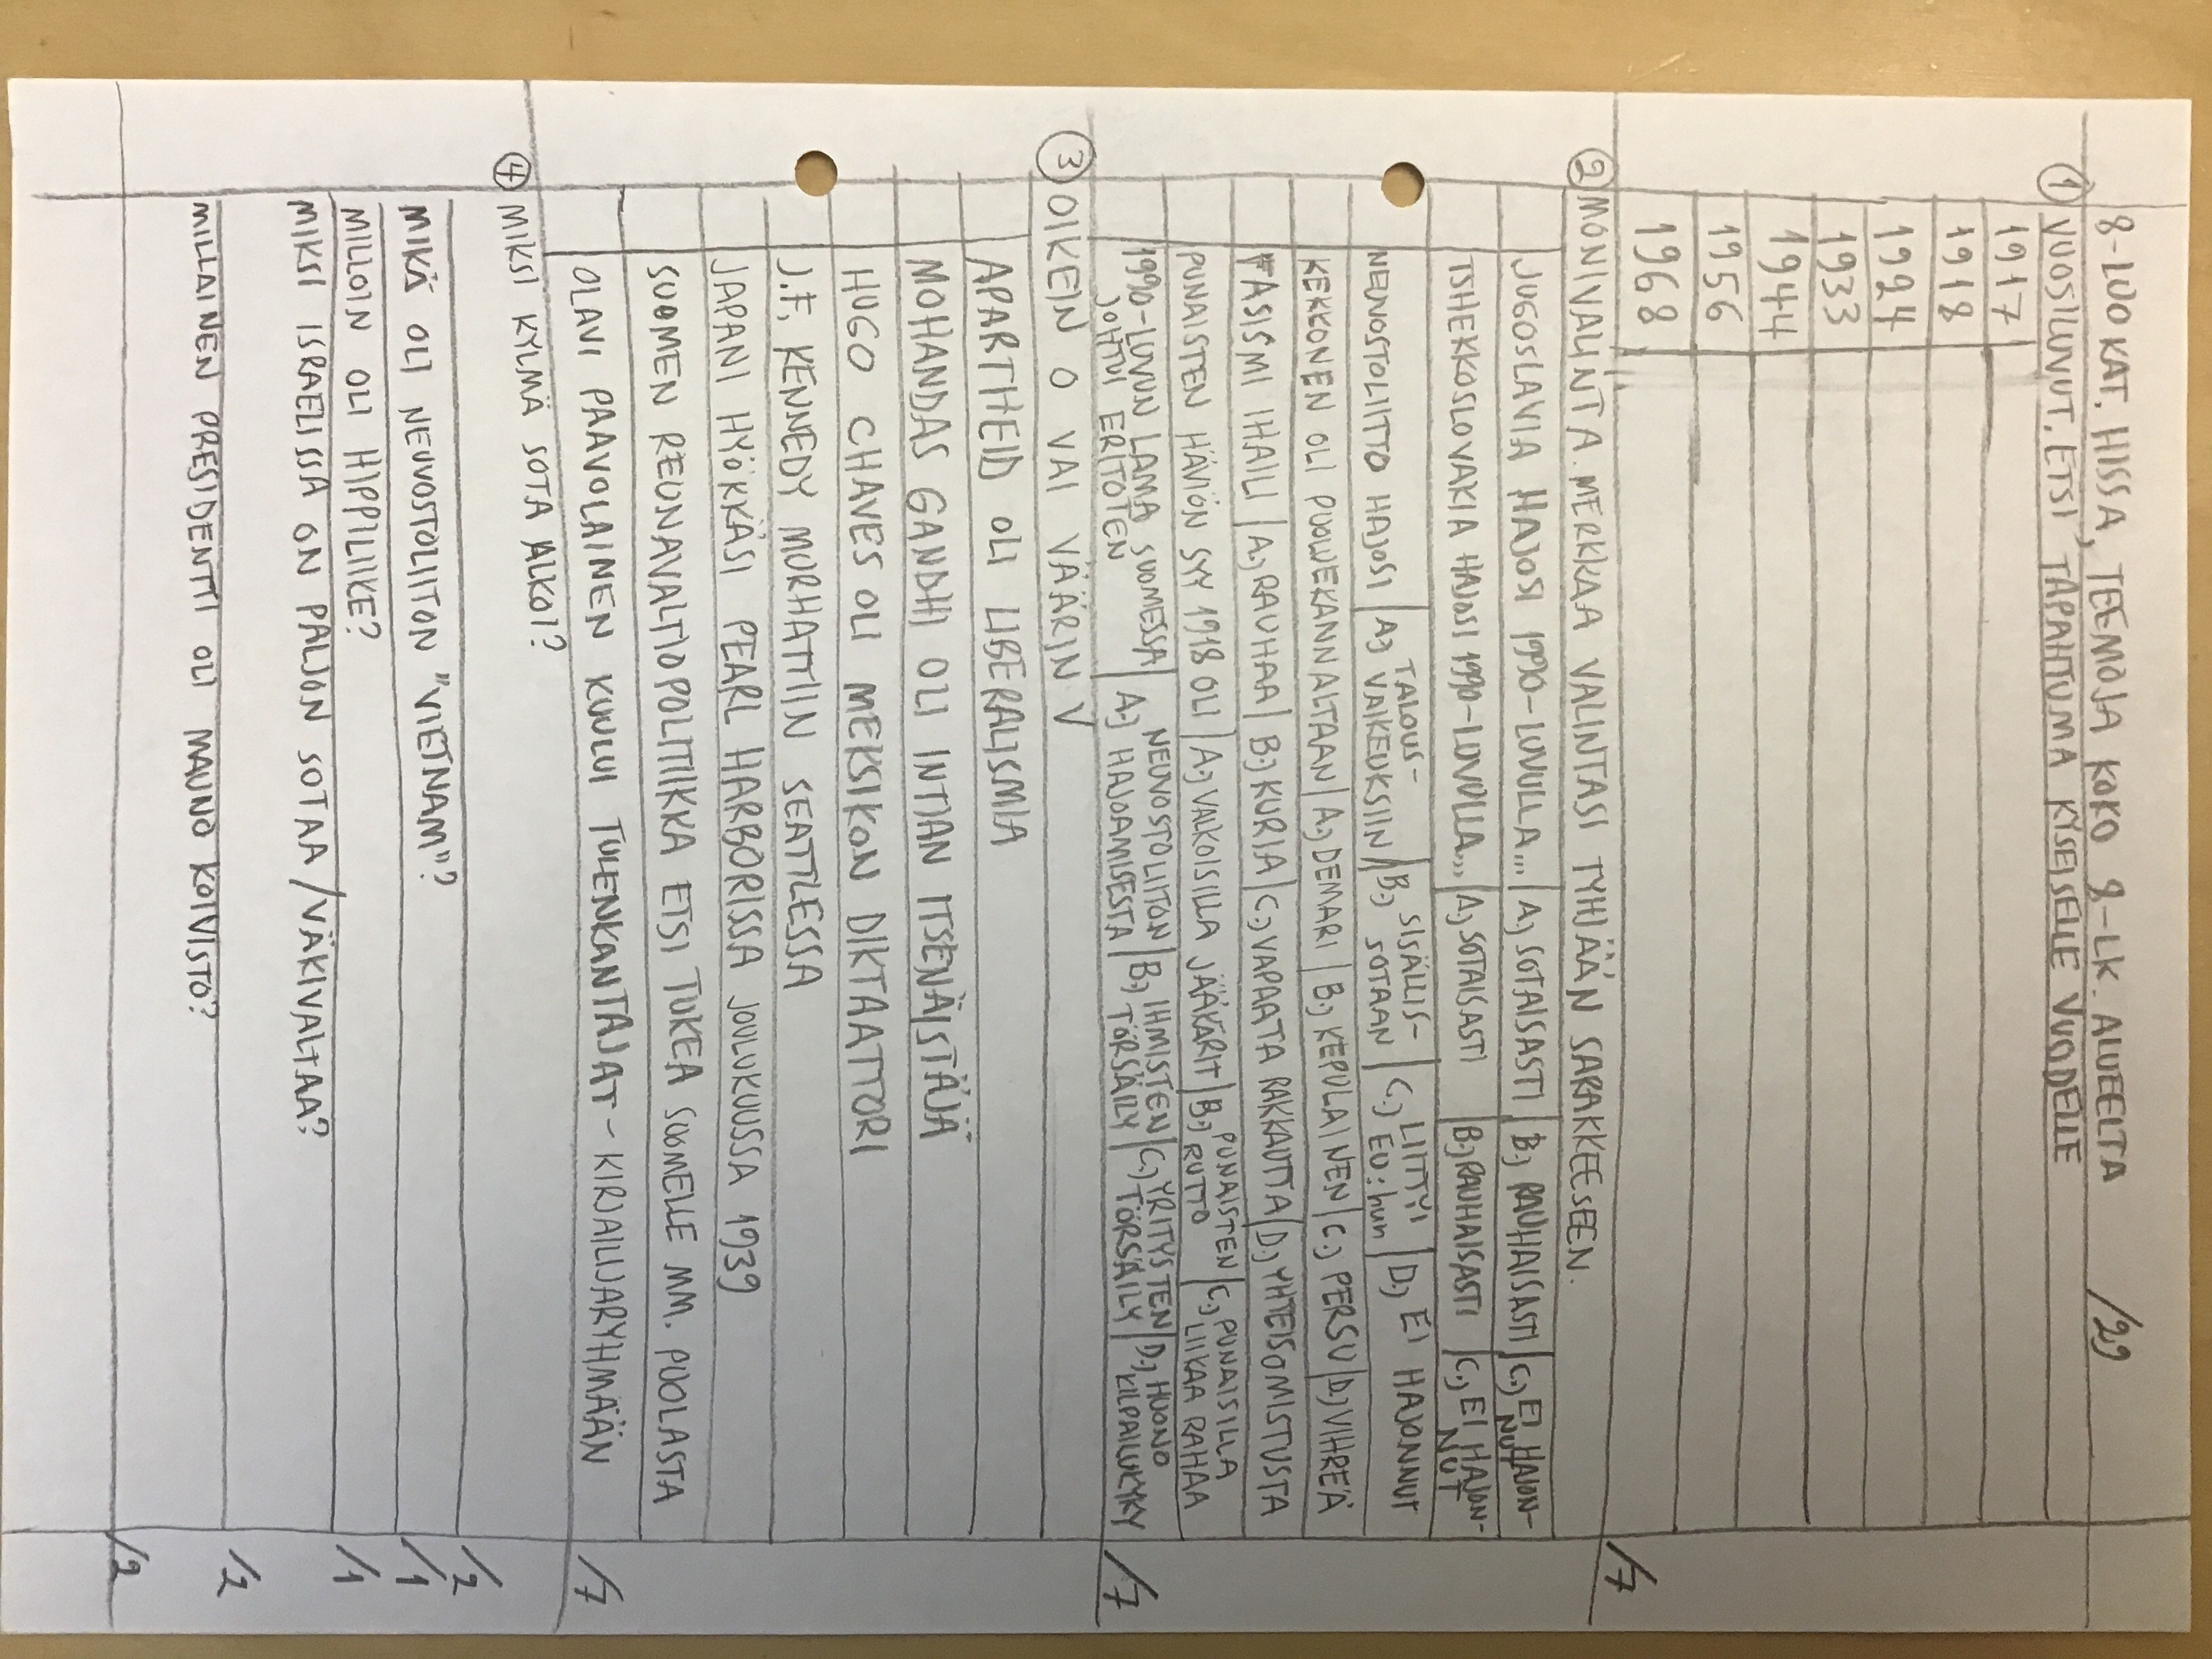 8-LUOKAT. HISSA, TEEMOJA KOKO 8-LK. ALUEELTA /29
① VUOSILUVUT. ETSI TAPAHTUMA KYSEISELLE VUODELLE
1917
1918
1924
1933
1944
1956
1968
/7
② MONIVALINTA. MERKKAA VALINTASI TYHJÄÄN SARAKKEESEEN.
JUGOSLAVIA HAJOSI 1990-LUVULLA... | A.) SOTAISASTI | B.) RAUHAISASTI | C.) EI HAJONNUT
TSHEKKOSLOVAKIA HAJOSI 1990-LUVULLA... | A.) SOTAISASTI B.) RAUHAISASTI | C.) EI HAJONNUT
NEUVOSTOLIITTO HAJOSI | A.) TALOUSVAIKEUKSIIN | B.) SISÄLLISSOTAAN | C.) LIITTYI EU:hun | D.) EI HAJONNUT
KEKKONEN OLI PUOLUEKANNALTAAN | A.) DEMARI | B.) KEPULAINEN | C.) PERSU | D.) VIHREÄ
FASISMI IHAILI | A.) RAUHAA | B.) KURIA | C.) VAPAATA RAKKAUTTA | D.) YHTEISOMISTUSTA
PUNAISTEN HÄVIÖN SYY 1918 OLI | A.) VALKOISILLA JÄÄKÄRIT | B.) PUNAISTEN RUTTO | C.) PUNAISILLA LIIKAA RAHAA
1990-LUVUN LAMA SUOMESSA JOHTUI ERITOTEN | A.) NEUVOSTOLIITON HAJOAMISESTA | B.) IHMISTEN TÖRSÄILY | C.) YRITYSTEN TÖRSÄILY | D.) HUONO KILPAILUKYKY
/7
③ OIKEIN O VAI VÄÄRIN V
APARTHEID OLI LIBERALISMIA
MOHANDAS GANDHI OLI INTIAN ITSENÄISTÄJÄ
HUGO CHAVES OLI MEKSIKON DIKTAATTORI
J.F. KENNEDY MURHATTIIN SEATTLESSA
JAPANI HYÖKKÄSI PEARL HARBORISSA JOULUKUUSSA 1939
SUOMEN REUNAVALTIOPOLITIIKKA ETSI TUKEA SUOMELLE MM. PUOLASTA
OLAVI PAAVOLAINEN KUULUI TULENKANTAJAT-KIRJAILIJARYHMÄÄN
/7
④ MIKSI KYLMÄ SOTA ALKOI?
/2
MIKÄ OLI NEUVOSTOLIITON "VIETNAM"?
/1
MILLOIN OLI HIPPILIIKE?
/1
MIKSI ISRAELISSA ON PALJON SOTAA/VÄKIVALTAA?
/2
MILLAINEN PRESIDENTTI OLI MAUNO KOIVISTO?
/2